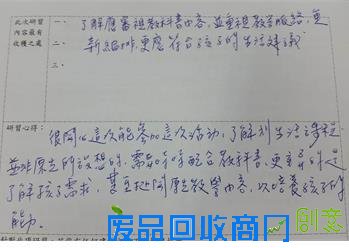 此次研習
內容最有
收穫之處
一、了解應審視教科書內容，並重視教學脈絡，更
新編排，更應符合孩子的生活建議
二、
三、
研習心得：
很開心這次能參加這次活動，了解到生活課程
並非原先所設想的，需如何配合教科書，更重要的是
了解孩子需求，甚至啟用原先教學內容，以培養孩子的
能力。
废品回收商门
創意